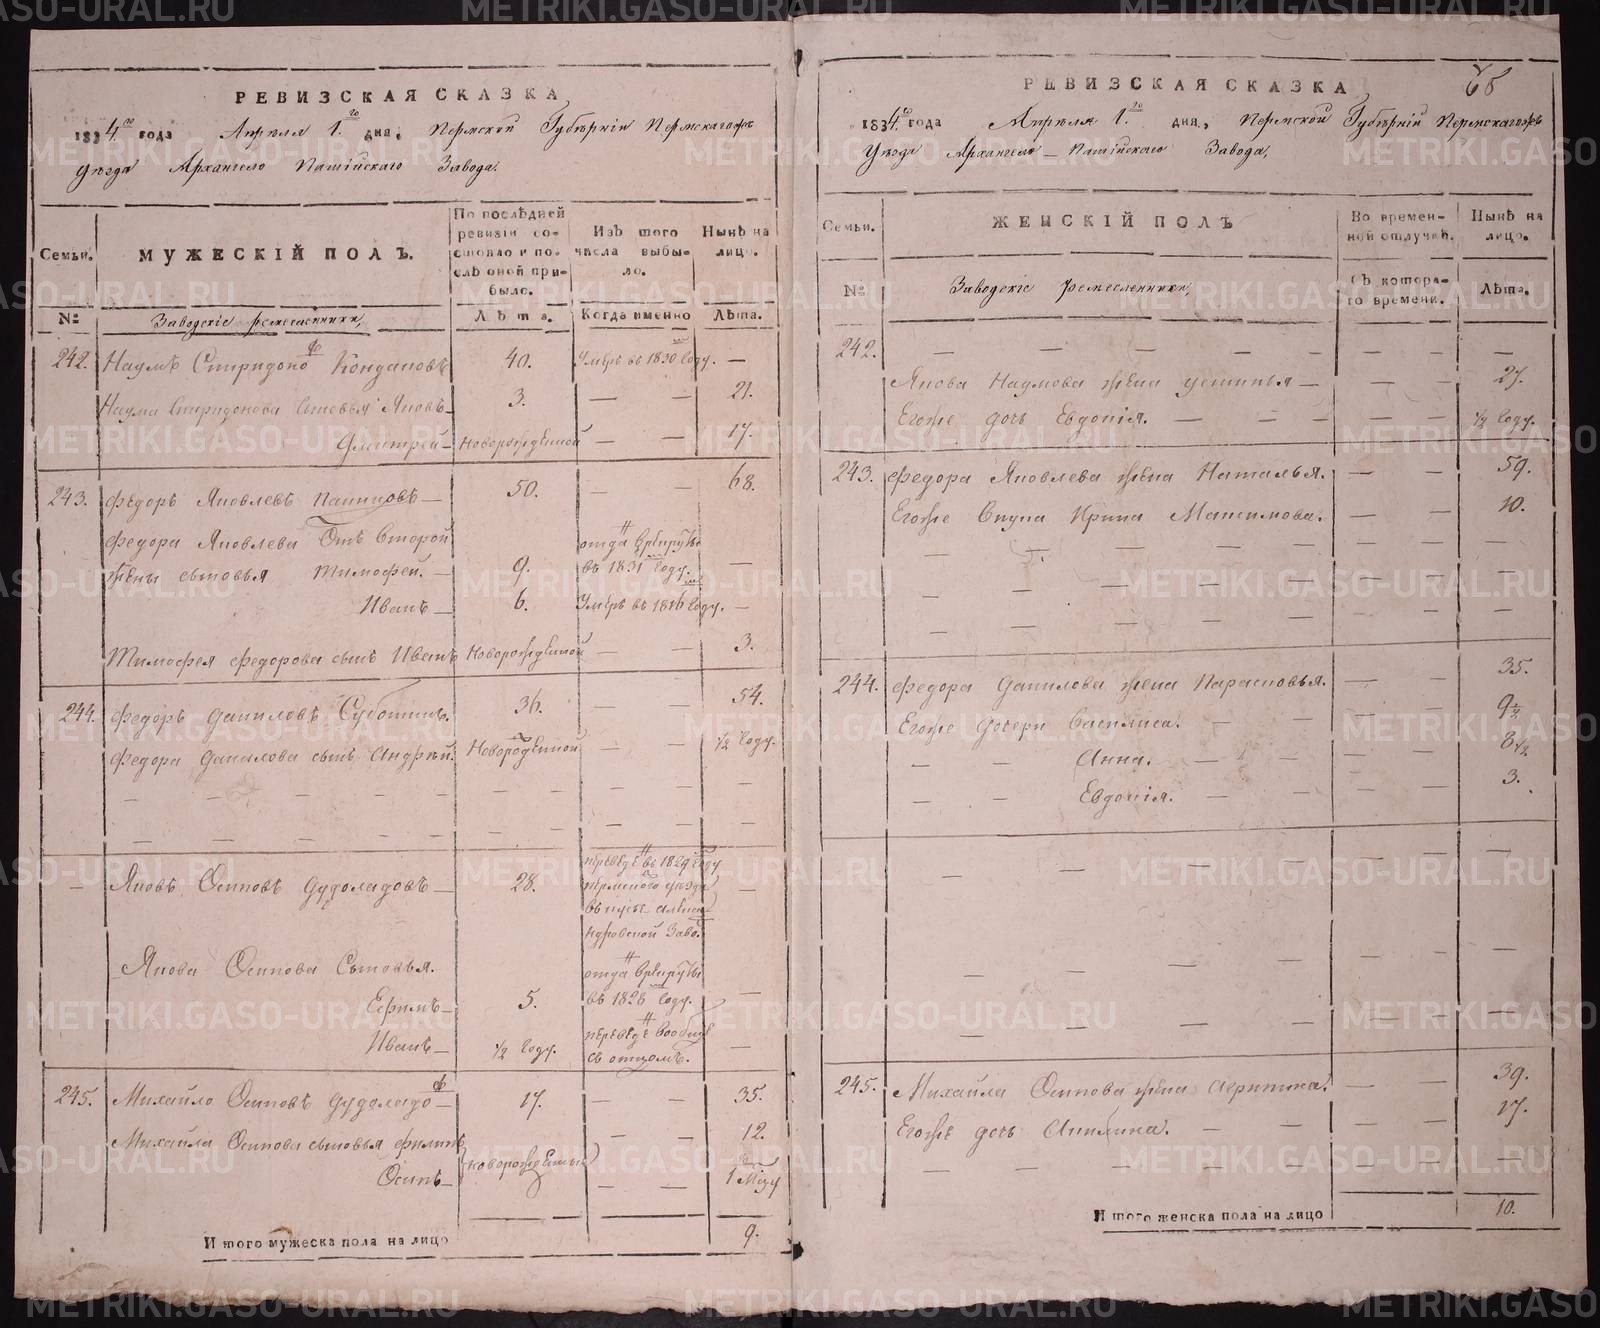 РЕВИЗСКАЯ СКАЗКА
1834го года Апреля 1го дня, Пермской Губернiи Пермскаго
Уезда Архангело Пашiйскаго Завода.
Семьи.
МУЖЕСКIЙ ПОЛЪ.
По последней ревизiи состояло и после оной прибыло.
Изъ того числа выбыло.
Ныне на лицо.
№
Заводскiе ремесленники,
Лета.
Когда именно
Лета.
242. Наумъ Спиридоно 40. Умеръ въ 1830 году. —
Наума Спиридонова сыновья Яковъ — 3. — — 21.
Дмитрей — Новорожденной — — 17.
243. Федоръ Яковлевъ 50. — — 68.
Федора Яковлева Отъ второй отда в рекруты
жены сыновья Тимофей. — 9. въ 1831 году. —
Иванъ — 6. Умеръ въ 1816 году. —
Тимофея Федорова сынъ Иванъ Новорожденной — — 3.
244. Федоръ Даниловъ Суботинъ. 36. — 54.
Федора Данилова сынъ Андрей. Новорожденной — — 1/2 году.
— Яковъ Осиповъ Дудоладовъ — 28. переведе въ 1829 году
пермскаго уезда
въ
ндровской Заво.
—
Якова Осипова Сыновья. отда в рекруты
Ефимъ — 5. въ 1828 году. —
Иванъ — 1/2 году. переведе вообще
съ отцомъ. —
245. Михайло Осиповъ Дудоладо 17. — — 35.
Михайла Осипова сыновья Филипъ — — 12.
Осипъ — новорожденные — — 1 Месяцу
И того мужеска пола на лицо 9.
РЕВИЗСКАЯ СКАЗКА
1834го года Апреля 1го дня, Пермской Губернiи Пермскаго
Уезда Архангело — Пашiйскаго Завода,
Семьи.
ЖЕНСКIЙ ПОЛЪ
Во временной отлучке.
Ныне на лицо.
№
Заводскiе ремесленники,
Съ котораго времени.
Лета.
242. — — — — — — — —
Якова Наумова жена Устинья — — — 27.
Егоже дочь Евдокiя. — — — — 1/2 году.
243. Федора Яковлева жена Наталья. — — 59.
Егоже Внука Ирина Максимова. — — 10.
244. Федора Данилова жена Парасковья. — — 35.
Егоже дочери Василиса. — — 9 1/2
— — Анна. — — — 8 1/2
— — Евдокiя. — — — 3.
245. Михайла Осипова жена Агрипина. — — 39.
Егоже дочь Акилина. — — — — 17.
И того женска пола на лицо 10.
METRIKI.GASO-URAL.RU